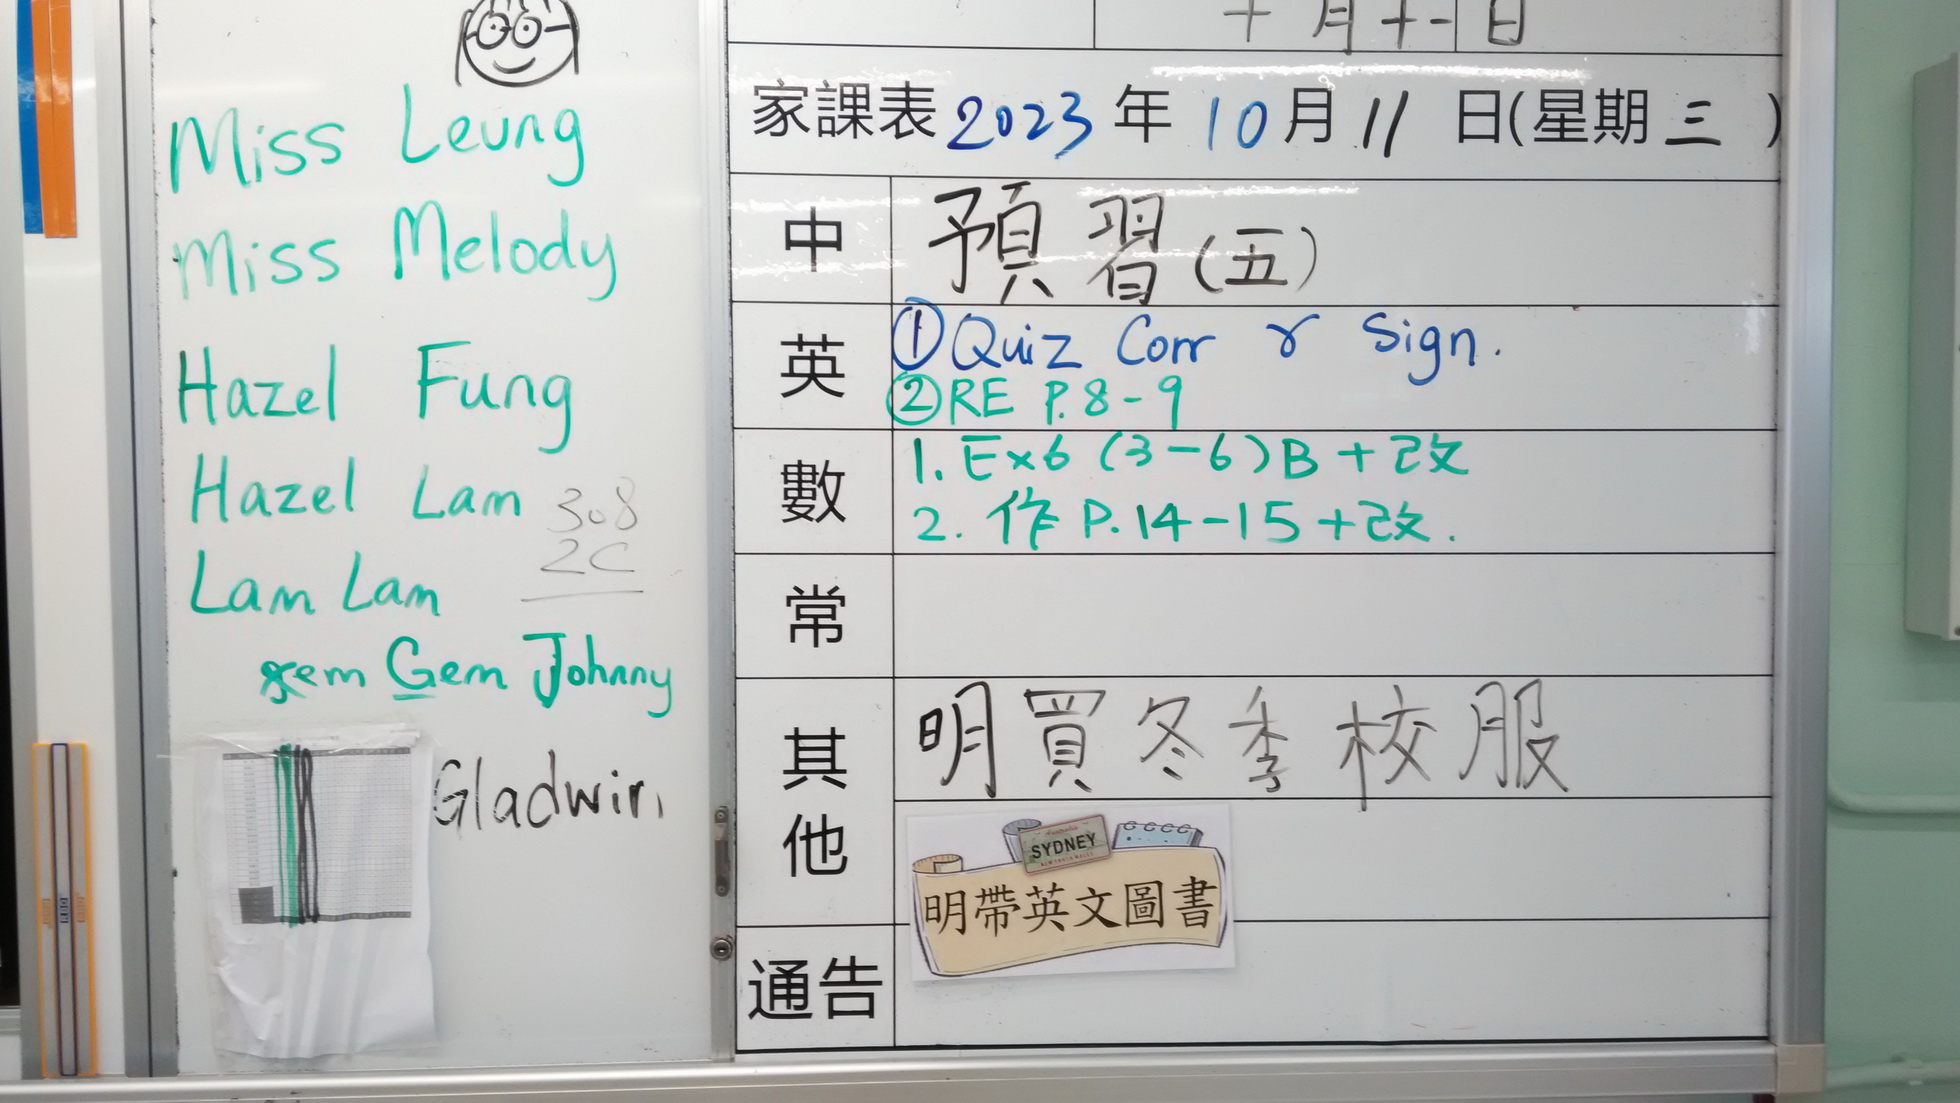 Miss Leung
Miss Melody
Hazel Fung
Hazel Lam
308
2C
Lam Lam
gem Gem Johnny
Gladwin
十月十一日
家課表 2023 年 10 月 11 日(星期三)
中 預習(五)
英 ①Quiz Corr & Sign.
②RE P.8-9
數 1. Ex6 (3-6)B+改
2. 作 P.14-15+改.
常
其他 明買冬季校服
SYDNEY
明帶英文圖書
通告